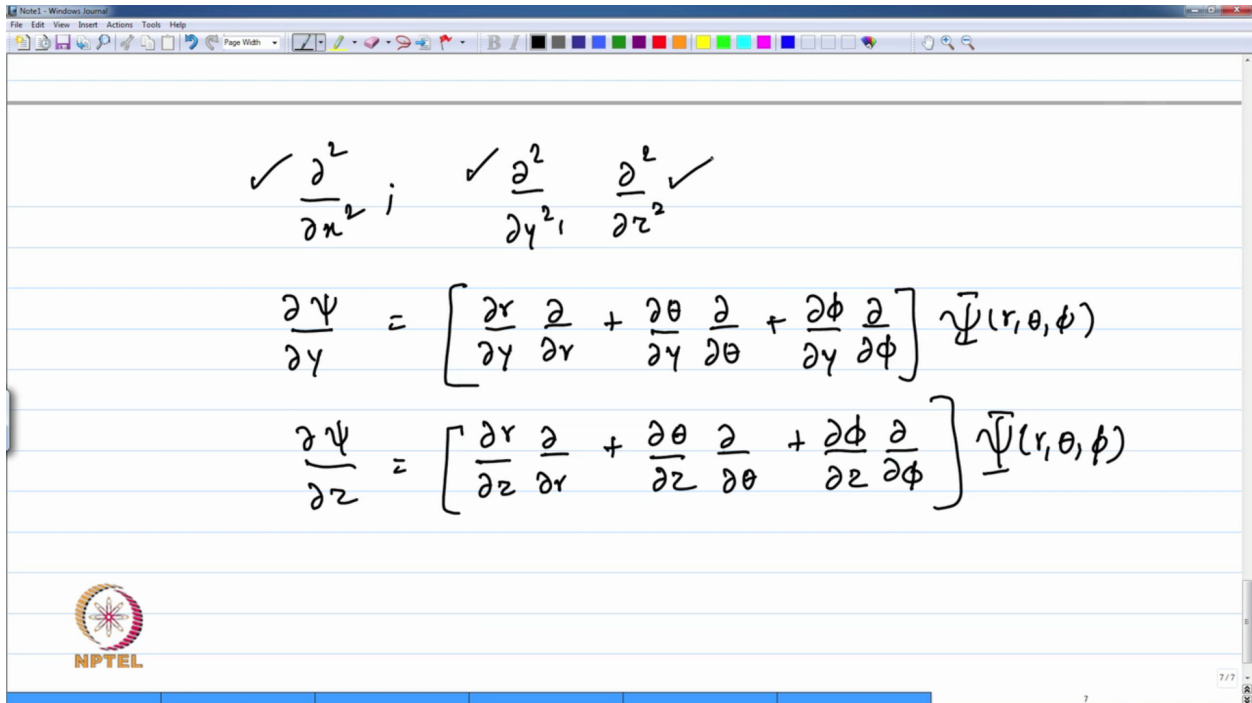 Note1 - Windows Journal
File Edit View Insert Actions Tools Help
Page Width
✓ ∂²/∂x² ; ✓ ∂²/∂y² , ∂²/∂z² ✓
∂ψ/∂y = [ ∂r/∂y ∂/∂r + ∂θ/∂y ∂/∂θ + ∂ϕ/∂y ∂/∂ϕ ] Ψ(r, θ, ϕ)
∂ψ/∂z = [ ∂r/∂z ∂/∂r + ∂θ/∂z ∂/∂θ + ∂ϕ/∂z ∂/∂ϕ ] Ψ(r, θ, ϕ)
NPTEL
7/7
7